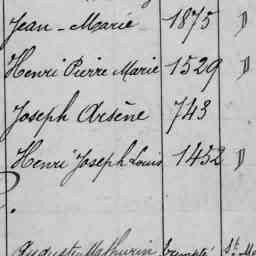 Jean-Marie 1875 "
Henri Pierre Marie 1529 "
Joseph Arsène 743
Henri Joseph Louis 1452 "
Auguste Mathurin